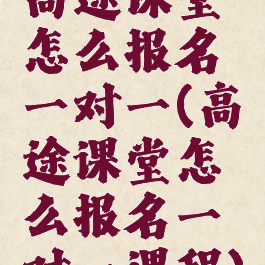 高途课堂
怎么报名
一对一(高
途课堂怎
么报名一
对一课程)